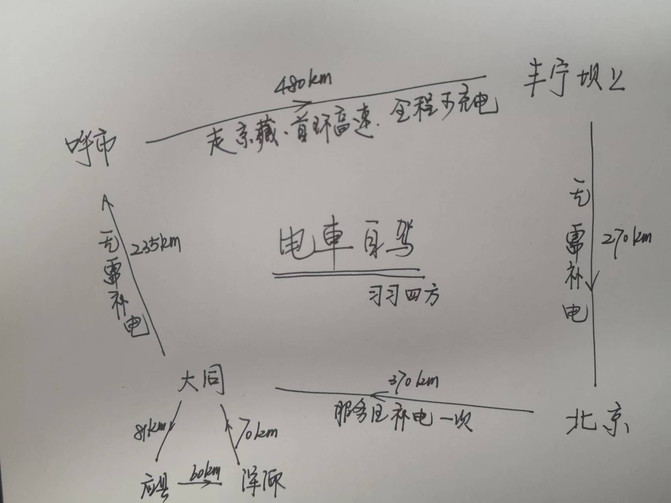 480km
丰宁坝上
呼市
走京藏、首环高速、全程可充电
235km
无需补电
电車自驾
习习四方
无需补电
270km
大同
370km
服务区补电一次
北京
81km
70km
应县
60km
浑源